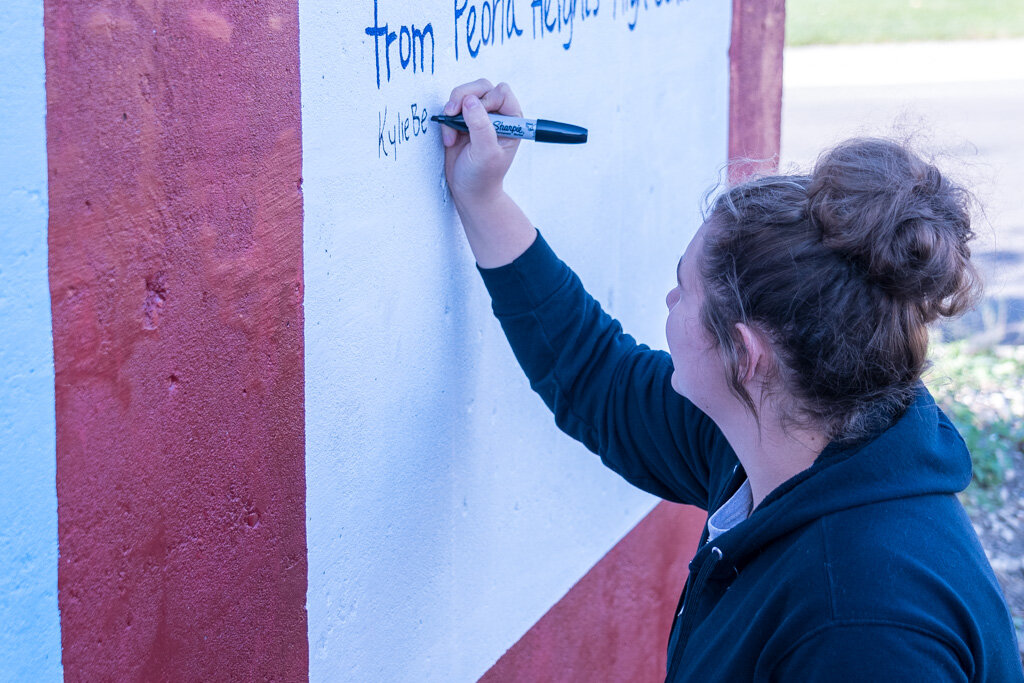 from Peoria Heights High
Kylie Be
Sharpie